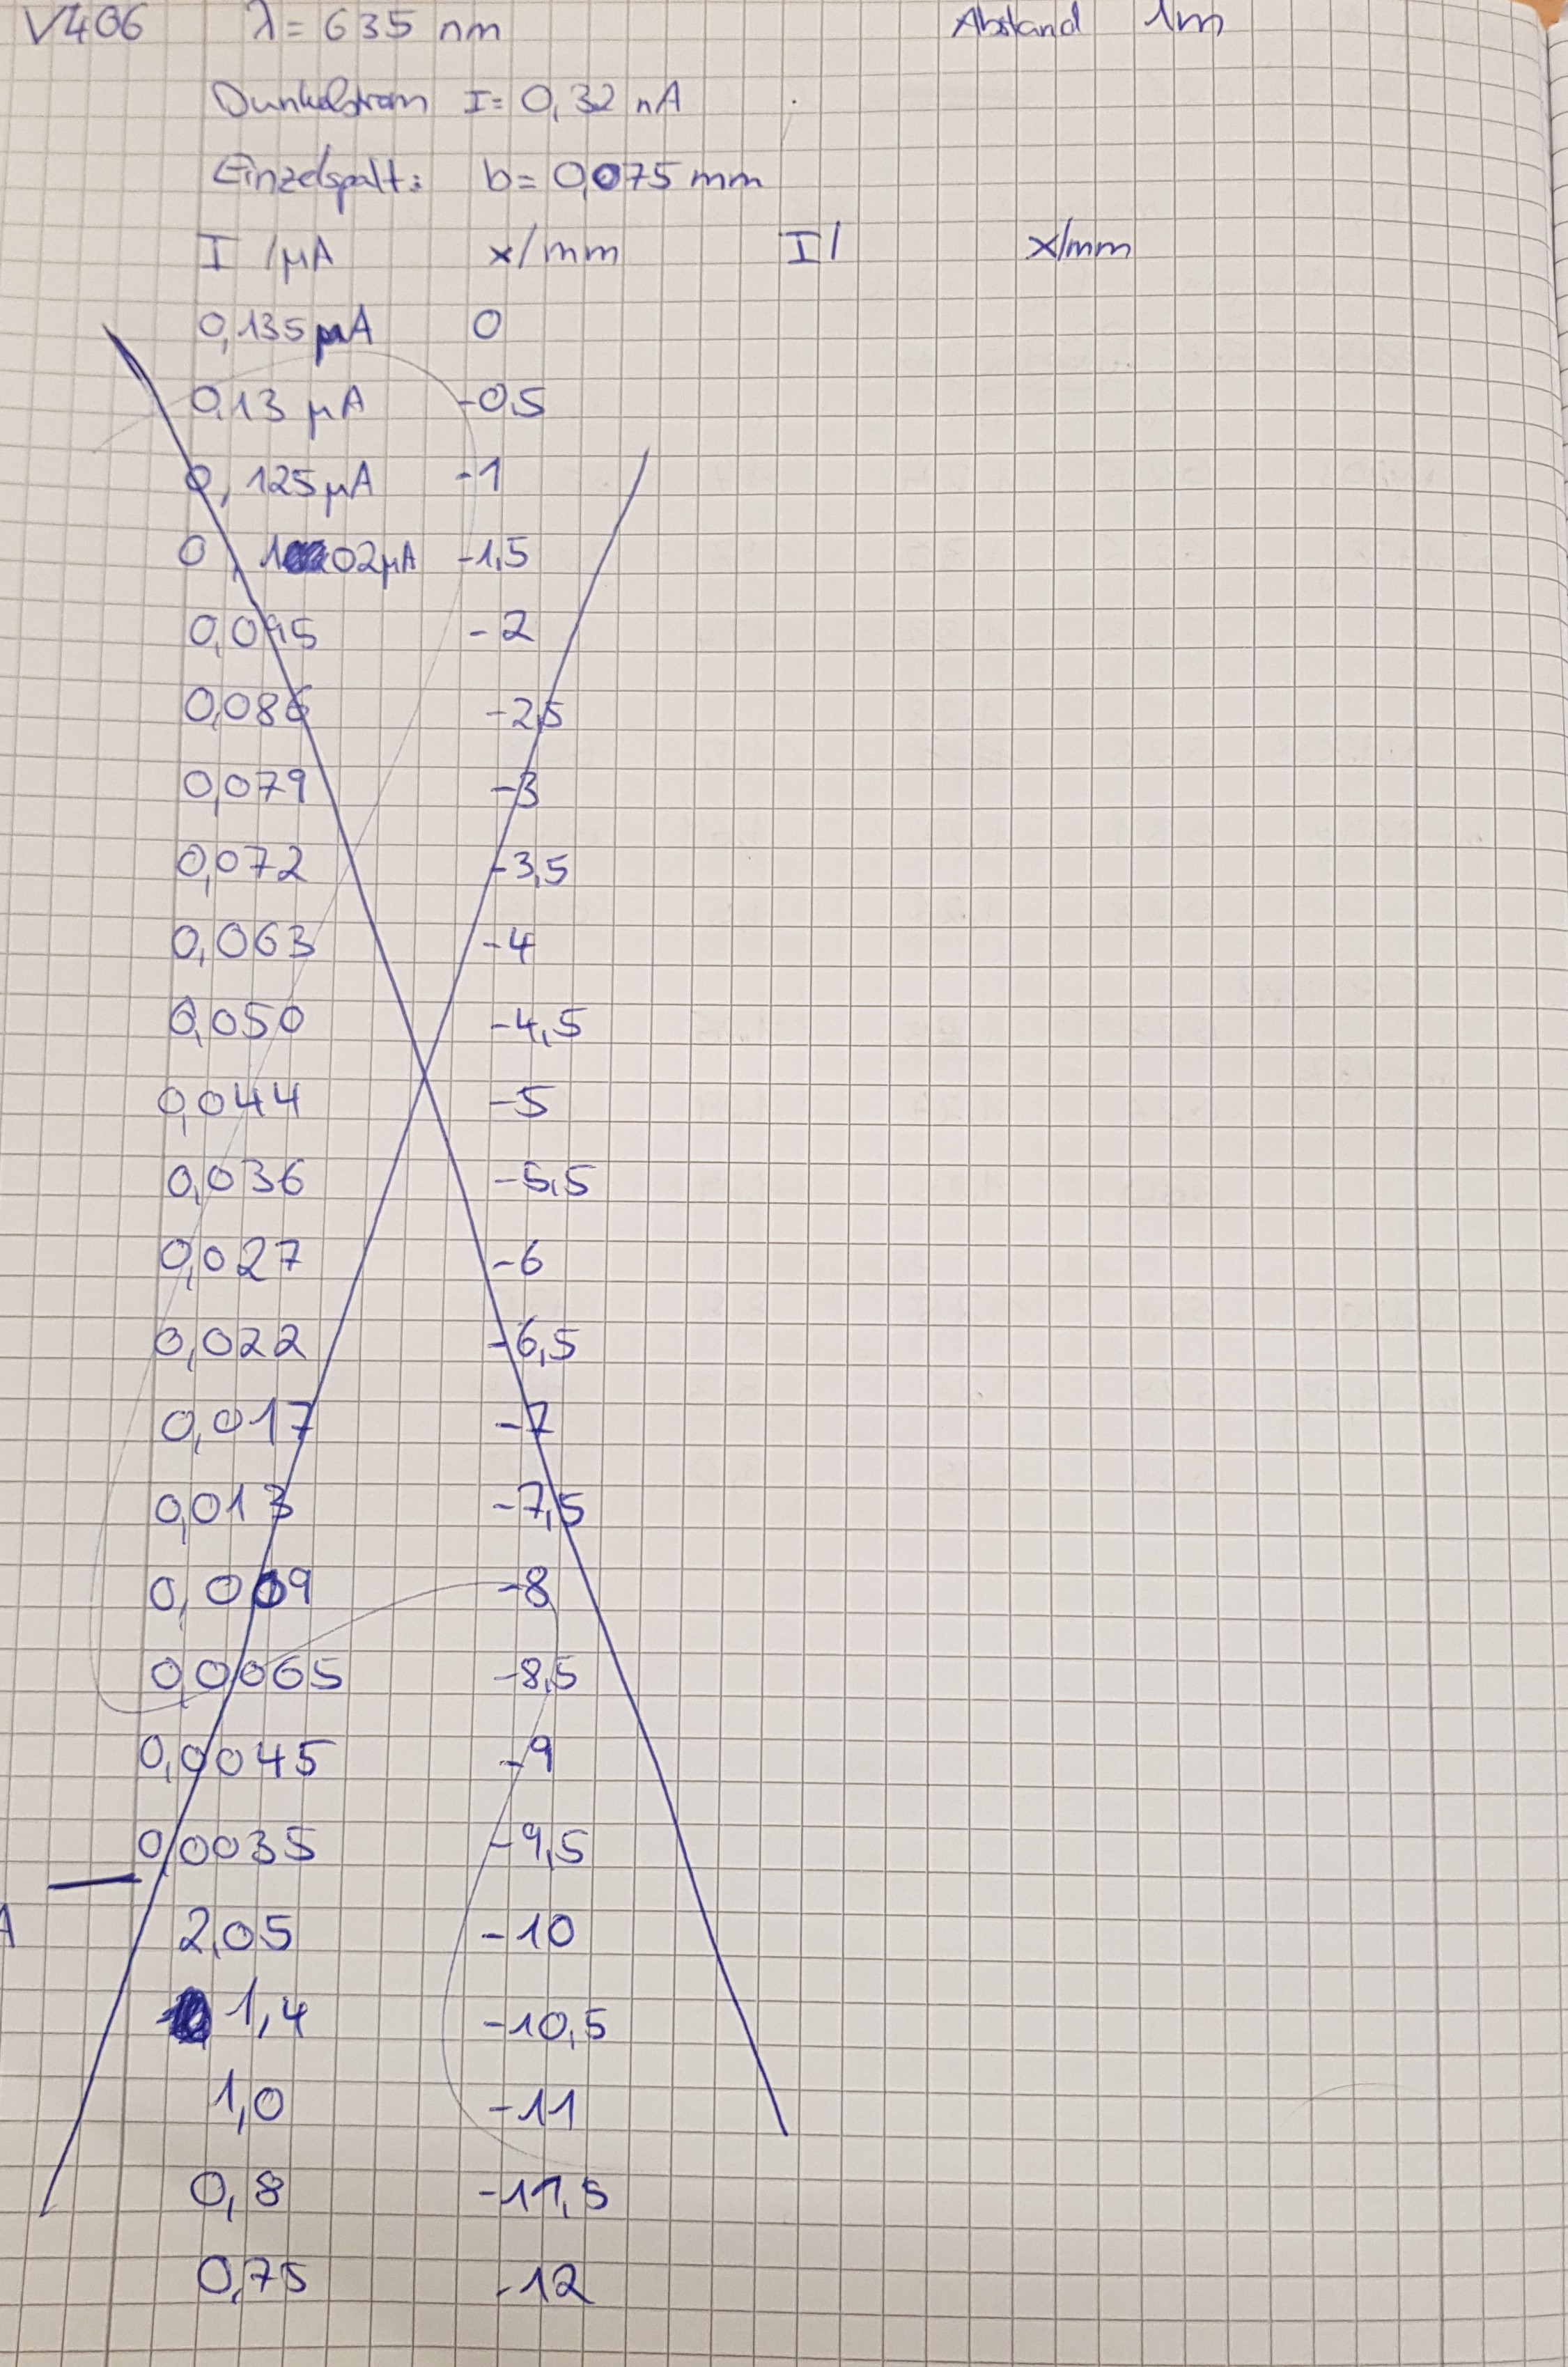 V406 λ = 635 nm Abstand 1m
Dunkelstrom I = 0,32 nA
Einzelspalt: b = 0,075 mm
I /μA x/mm I/ x/mm
0,135 μA 0
0,13 μA -0,5
0,125 μA -1
0,102 μA -1,5
0,095 -2
0,086 -2,5
0,079 -3
0,072 -3,5
0,063 -4
0,050 -4,5
0,044 -5
0,036 -5,5
0,027 -6
0,022 -6,5
0,017 -7
0,013 -7,5
0,009 -8
0,0065 -8,5
0,0045 -9
0,0035 -9,5
A 2,05 -10
1,4 -10,5
1,0 -11
0,8 -11,5
0,75 -12